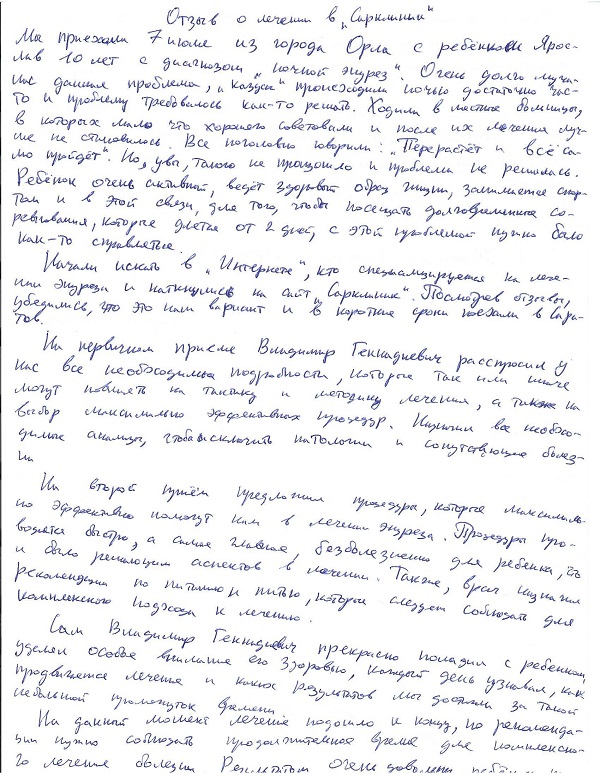 Отзыв о лечении в „Сарклиник"
Мы приехали 7 июле из города Орла с ребёнком Ярос-
лав 10 лет с диагнозом „ночной энурез". Очень долго мучи-
нас данная проблема, „казусы" происходили ночью достаточно час-
то и проблему требовалось как-то решать. Ходили в местные больницы,
в которых мало что хорошего советовали и после их лечения луч-
ше не становилось. Все поголовно говорили: „Перерастёт и всё са-
мо пройдёт". Но, увы, такого не произошло и проблема не решалась.
Ребёнок очень активный, ведёт здоровый образ жизни, занимается спор-
том и в этой связи, для того, чтобы посещать долговременные со-
ревнования, которые длятся от 2 дней, с этой проблемой нужно было
как-то справляться.
Начали искать в „Интернете", кто специализируется на лече-
нии энуреза и наткнулись на сайт „Сарклиник". Посмотрев отзывы,
убедились, что это наш вариант и в короткие сроки поехали в Сара-
тов.
На первичном приёме Владимир Геннадиевич расспросил у
нас все необходимые подробности, которые так или иначе
могут повлиять на тактику и методику лечения, а также на
выбор максимально эффективных процедур. Назначил все необхо-
димые анализы, чтобы исключить патологии и сопутствующие болез-
ни
На второй приём предложил процедуры, которые максималь-
но эффективно помогут нам в лечении энуреза. Процедуры про-
водятся быстро, а самое главное, безболезненно для ребёнка, что
и было решающим аспектов в лечении. Также, врач назначил
рекомендации по питанию и питью, которые следует соблюдать для
комплексного подхода к лечению.
Сам Владимир Геннадиевич прекрасно поладил с ребенком,
уделял особое внимание его здоровью, каждый день узнавал, как
продвигается лечение и каких результатов мы достигли за такой
небольшой промежуток времени.
На данный момент лечение подошло к концу, но рекоменда-
ции нужно соблюдать продолжительное время для комплексно-
го лечения болезни. Результатом очень довольны